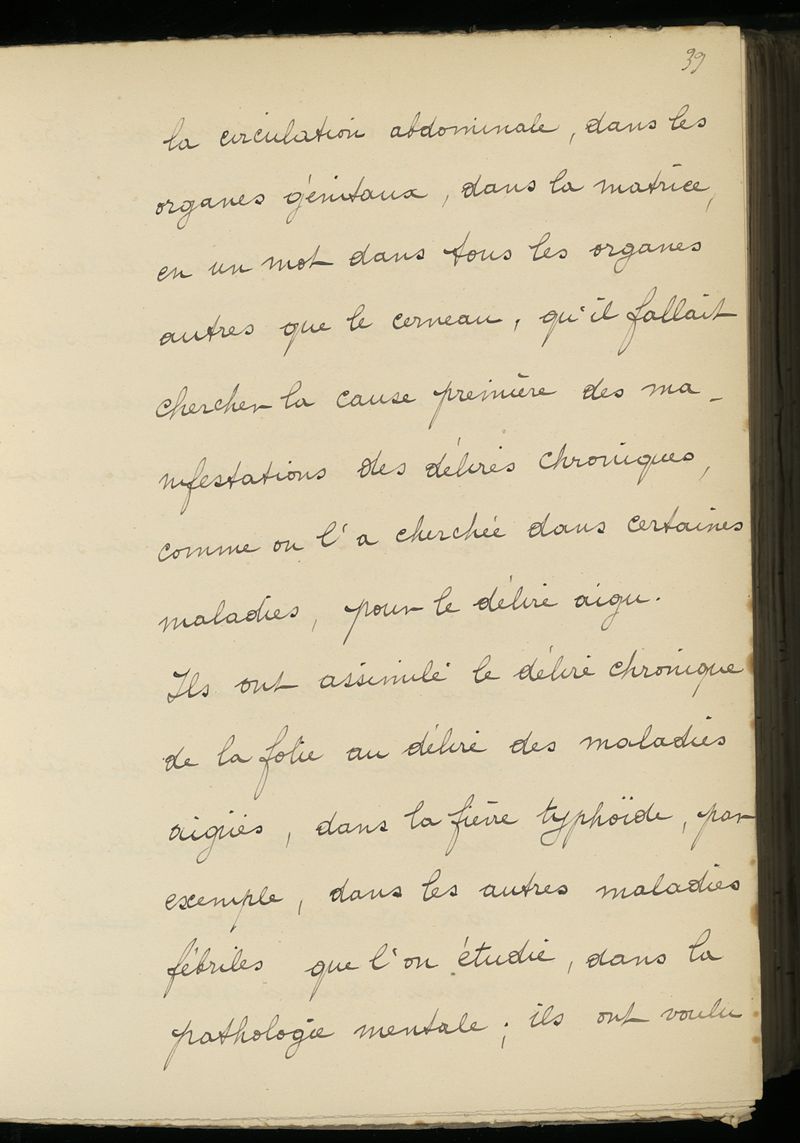 39
la circulation abdominale, dans les
organes génitaux, dans la matrice,
en un mot dans tous les organes
autres que le cerveau, qu'il fallait
chercher la cause première des ma-
nifestations des délires chroniques,
comme on l'a cherchée dans certaines
maladies, pour le délire aigu.
Ils ont assimilé le délire chronique
de la folie au délire des maladies
aigües, dans la fièvre typhoïde, par
exemple, dans les autres maladies
fébriles que l'on étudie, dans la
pathologie mentale; ils ont voulu